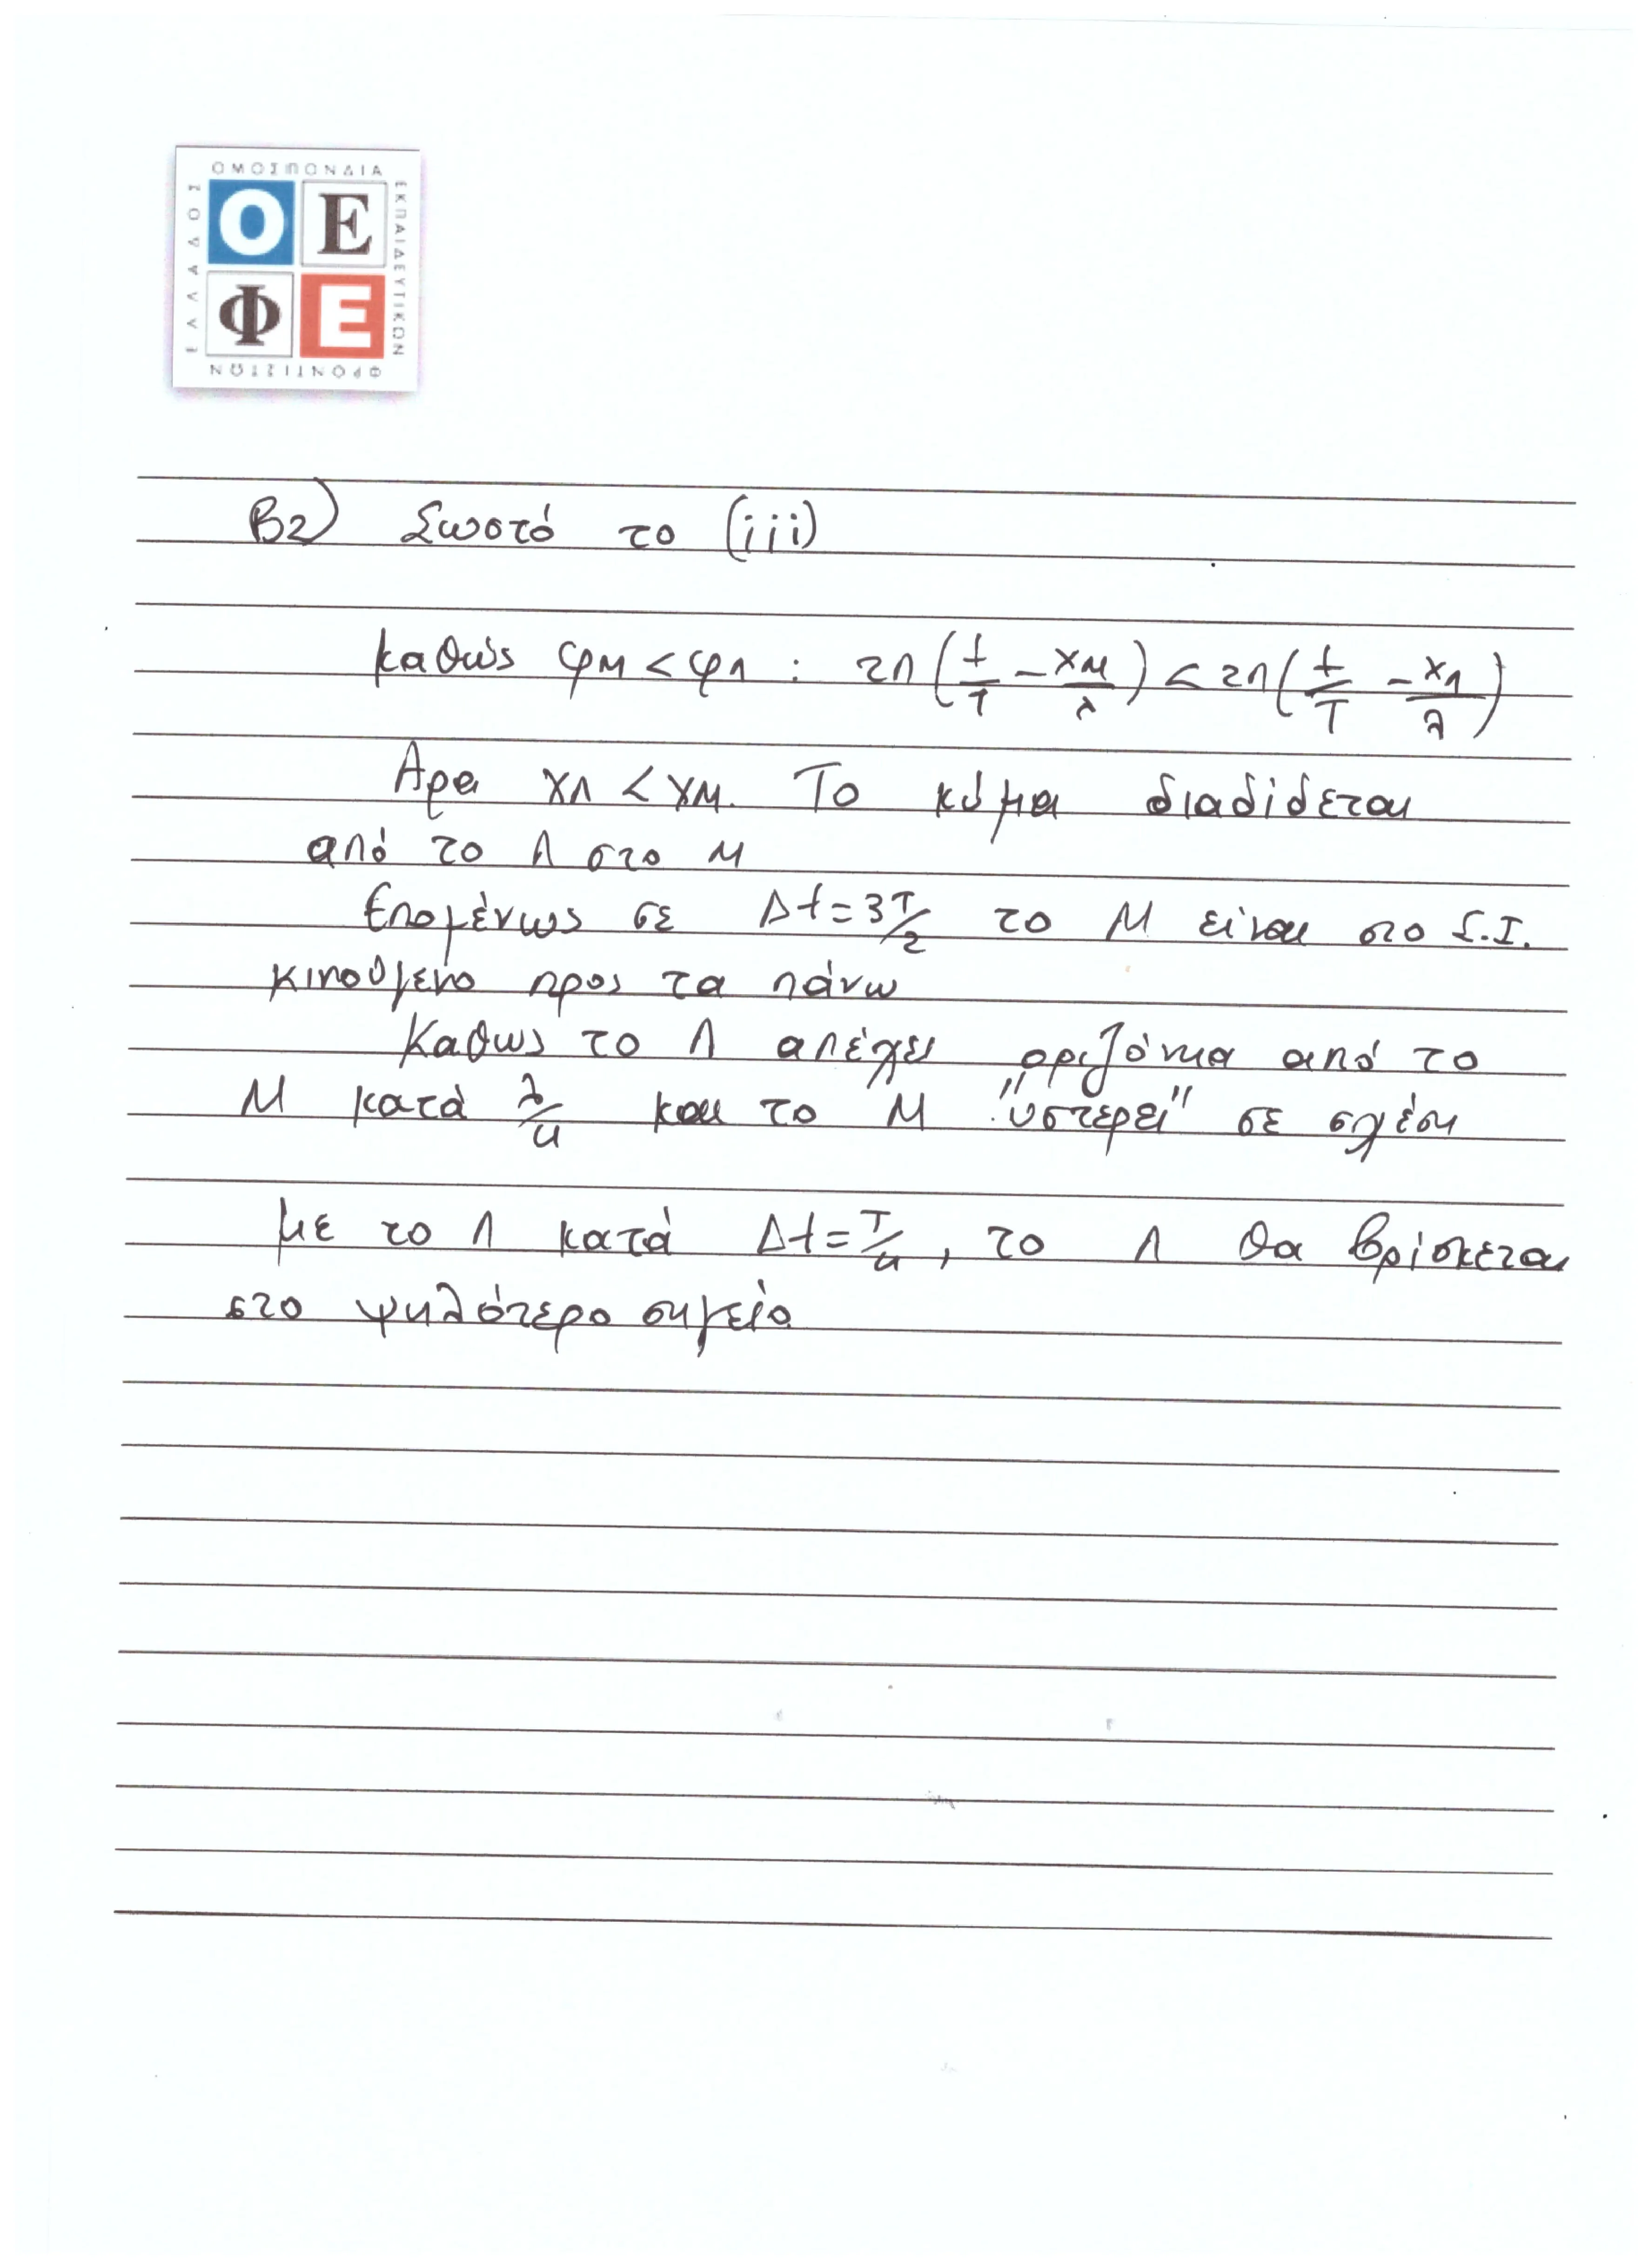 ΟΜΟΣΠΟΝΔΙΑ
ΕΚΠΑΙΔΕΥΤΙΚΩΝ
ΦΡΟΝΤΙΣΤΩΝ
ΕΛΛΑΔΟΣ
Ο Ε
Φ Ε
Β2) Σωστό το (iii)
Καθώς φΜ < φΛ : 2π(t/T - xΜ/λ) < 2π(t/T - xΛ/λ)
Άρα xΛ < xΜ. Το κύμα διαδίδεται
από το Λ στο Μ
Επομένως σε Δt = 3T/2 το Μ είναι στο Θ.Ι.
κινούμενο προς τα πάνω
Καθώς το Λ απέχει οριζόντια από το
Μ κατά λ/4 και το Μ "υστερεί" σε σχέση
με το Λ κατά Δt = T/4, το Λ θα βρίσκεται
στο ψηλότερο σημείο.